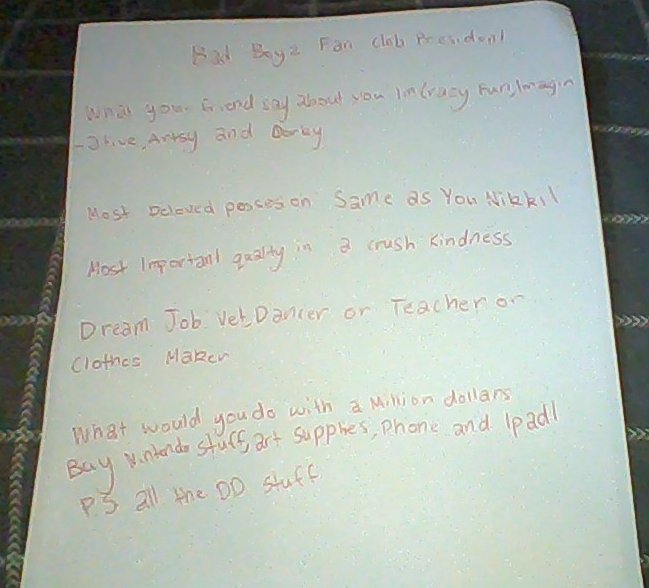 Bad Boyz Fan Club President
What your friend say about you Im Crazy Fun, Imagin
-Itive, Artsy and Dorky
Most Beloved possesion Same as You Nikki!
Most Important quality in a crush Kindness
Dream Job Vet, Dancer or Teacher or
Clothes Maker
What would you do with a Million dollars
Buy Nintendo stuff, art supplies, Phone and Ipad!
PS all the DD stuff